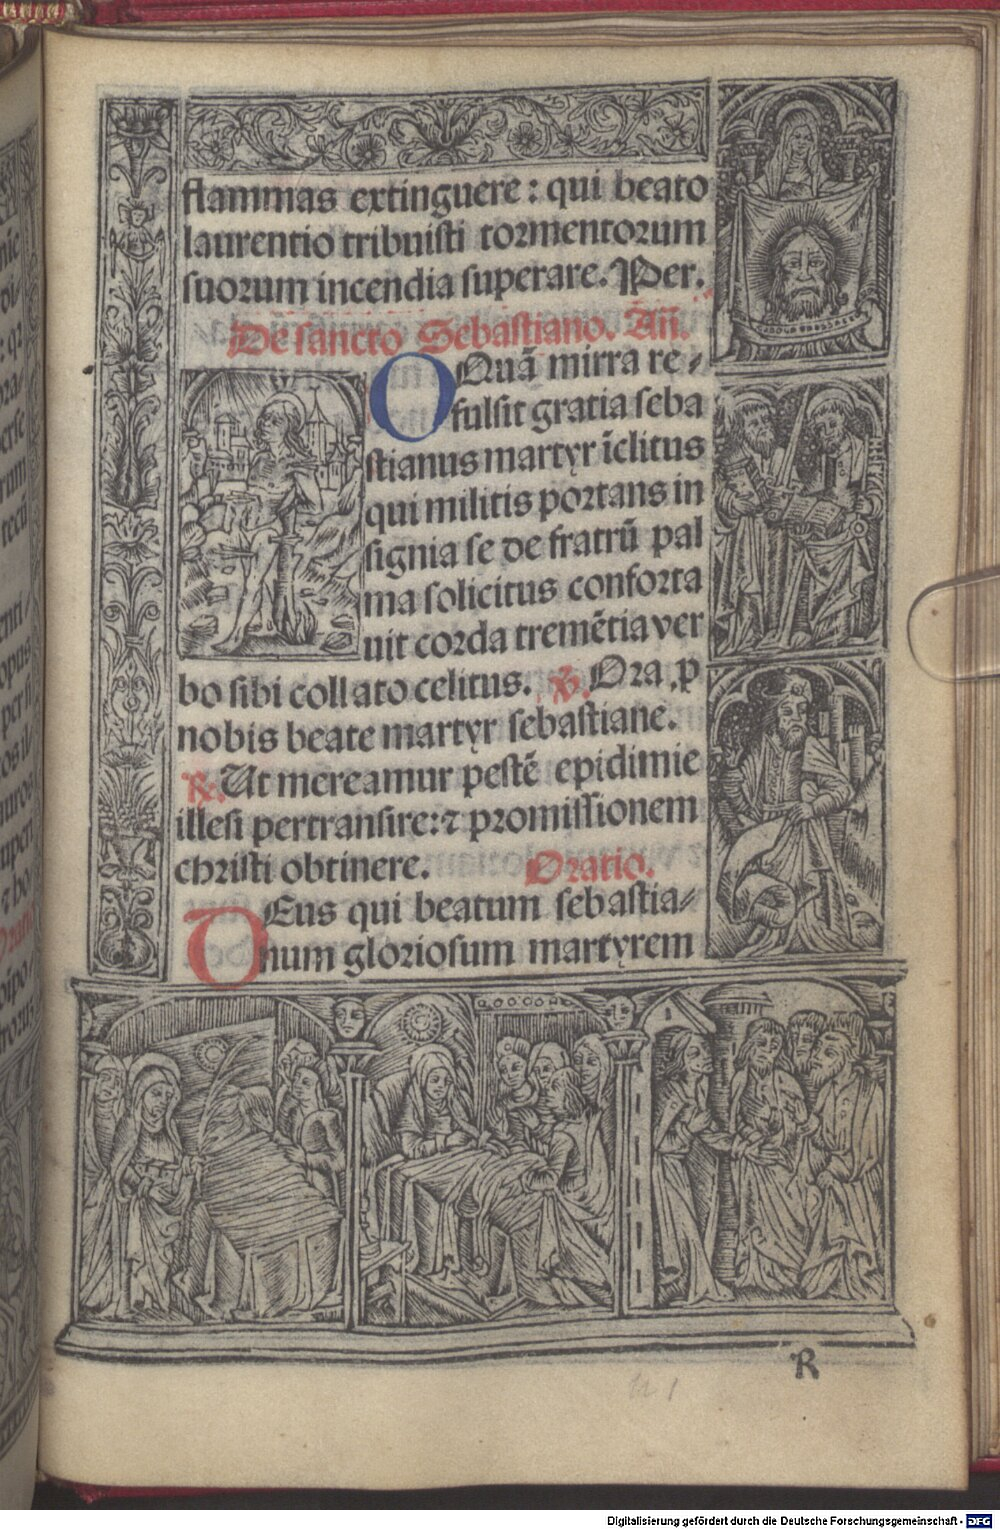 flammas extinguere : qui beato
laurentio tribuisti tormentorum
suorum incendia superare. Per.
De sancto Sebastiano. Añ.
O Quã mirra re-
fulsit gratia seba
stianus martyr ĩclitus
qui militis portans in
signia se de fratrũ pal
ma solicitus conforta
uit corda tremẽtia ver
bo sibi collato celitus. ℣. Ora ꝓ
nobis beate martyr sebastiane.
℟. Ut mereamur pestẽ epidimie
illesi pertransire: ⁊ promissionem
christi obtinere. Oratio.
DEus qui beatum sebastia-
num gloriosum martyrem
R
Digitalisierung gefördert durch die Deutsche Forschungsgemeinschaft - DFG